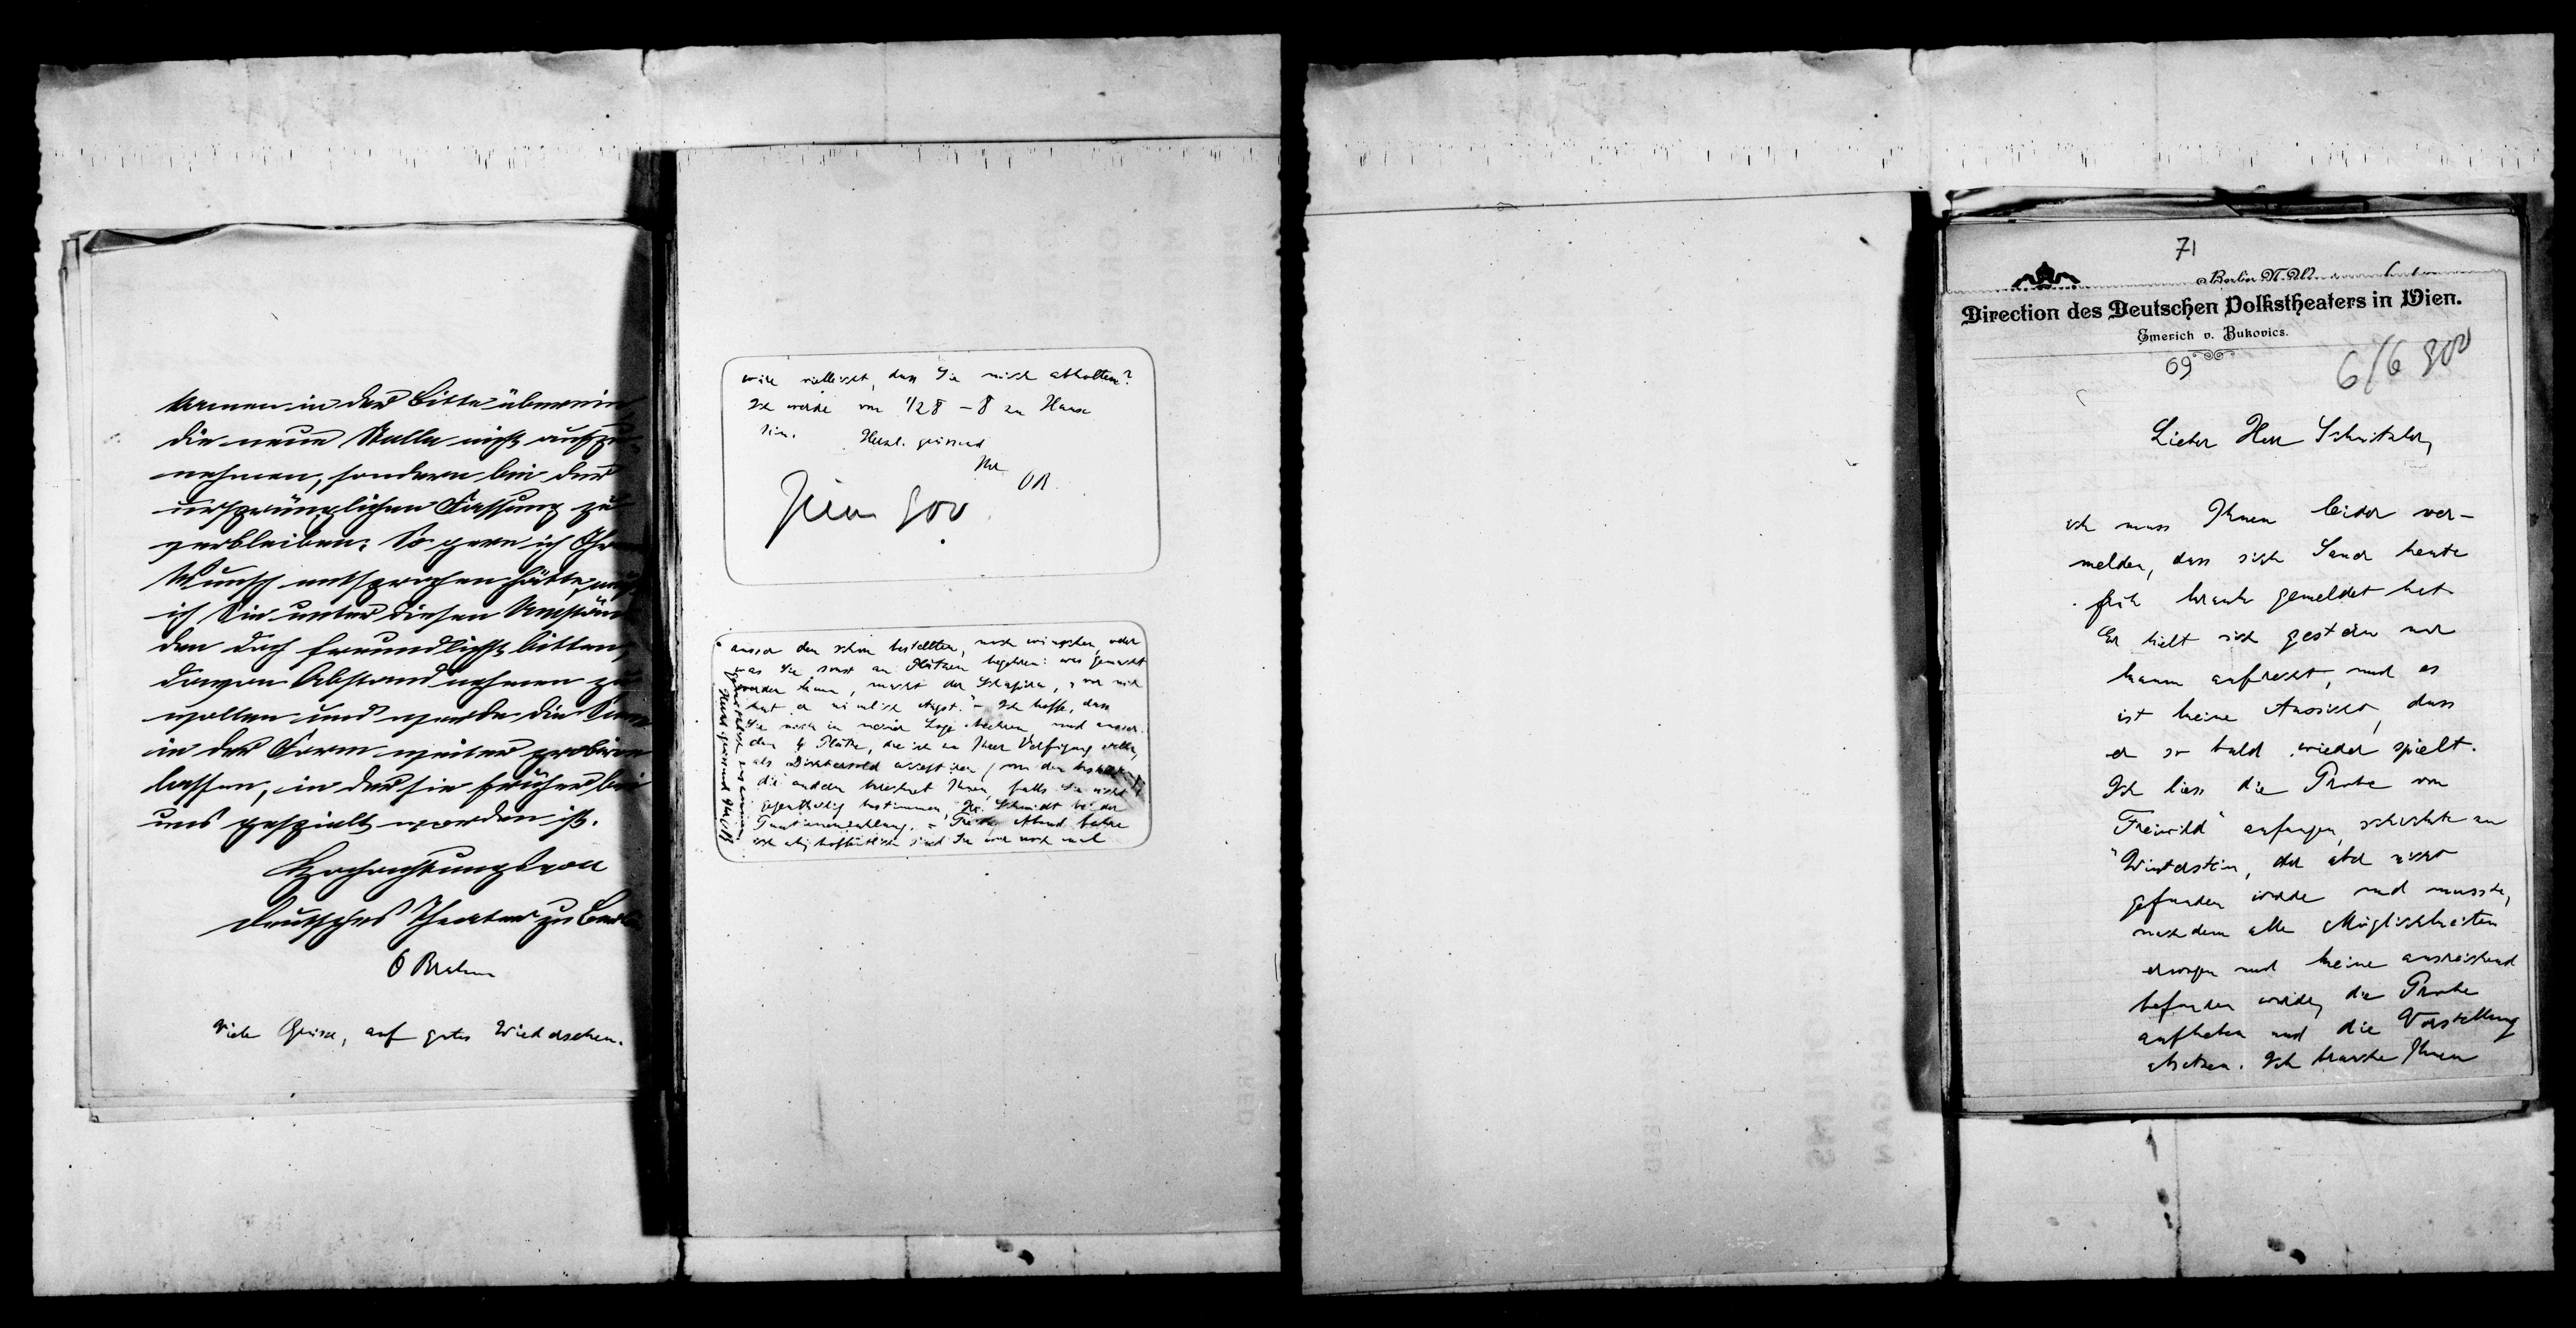 kamen in der Bitte überein,
die neue Stelle nicht aufzu-
nehmen, sondern bei der
ursprünglichen Fassung zu
verbleiben. So gern ich Ihrem
Wunsch entsprochen hätte, muß
ich Sie unter diesen Umstän-
den doch freundlichst bitten,
davon Abstand nehmen zu
wollen und werde die Scene
in der Form weiter probiren
lassen, in der sie früher bei
uns gespielt worden ist.
Hochachtungsvoll
Deutsches Theater zu Berlin
O Brahm
Viele Grüsse, auf gutes Wiedersehen.
wäre vielleicht, dass Sie mich abholten?
Ich werde von 1/2 8 – 8 zu Hause
sein. Herzl. grüssend
Ihr
OB.
900
ausser den schon bestellten, noch wünschen, oder
was Sie sonst an Plätzen begehren: was gemacht
werden kann, macht der Schapira, "vor mir
hat er nämlich Angst." – Ich hoffe, dass
Sie mich in meiner Loge besuchen und ausser
den 4 Plätzen, die ich zu Ihrer Verfügung stelle,
als Dichtersold acceptiren
die andern berechnet Ihnen, falls Sie nicht
gegentheilig bestimmen, Hr. Schmidt bei der
Tantiemenzahlung. – Freitag Abend
ich
Herzl grüssend Ihr OB
71
Berlin N.W.
Direction des Deutschen Volkstheaters in Wien.
Emerich v. Bukovics.
69
6/6 900
Lieber Herr Schnitzler,
ich muss Ihnen leider ver-
melden, dass sich Sauer heute
früh krank gemeldet hat.
Er hielt sich gestern nur
kaum aufrecht, und es
ist keine Aussicht, dass
er so bald wieder spielt.
Ich liess die Probe von
"Freiwild" anfangen, schickte an
Winterstein, der aber nicht
gefunden wurde und musste,
nachdem alle Möglichkeiten
erwogen und keine ausreichend
befunden wurde, die Probe
aufheben und die Vorstellung
absetzen. Ich brauche Ihnen